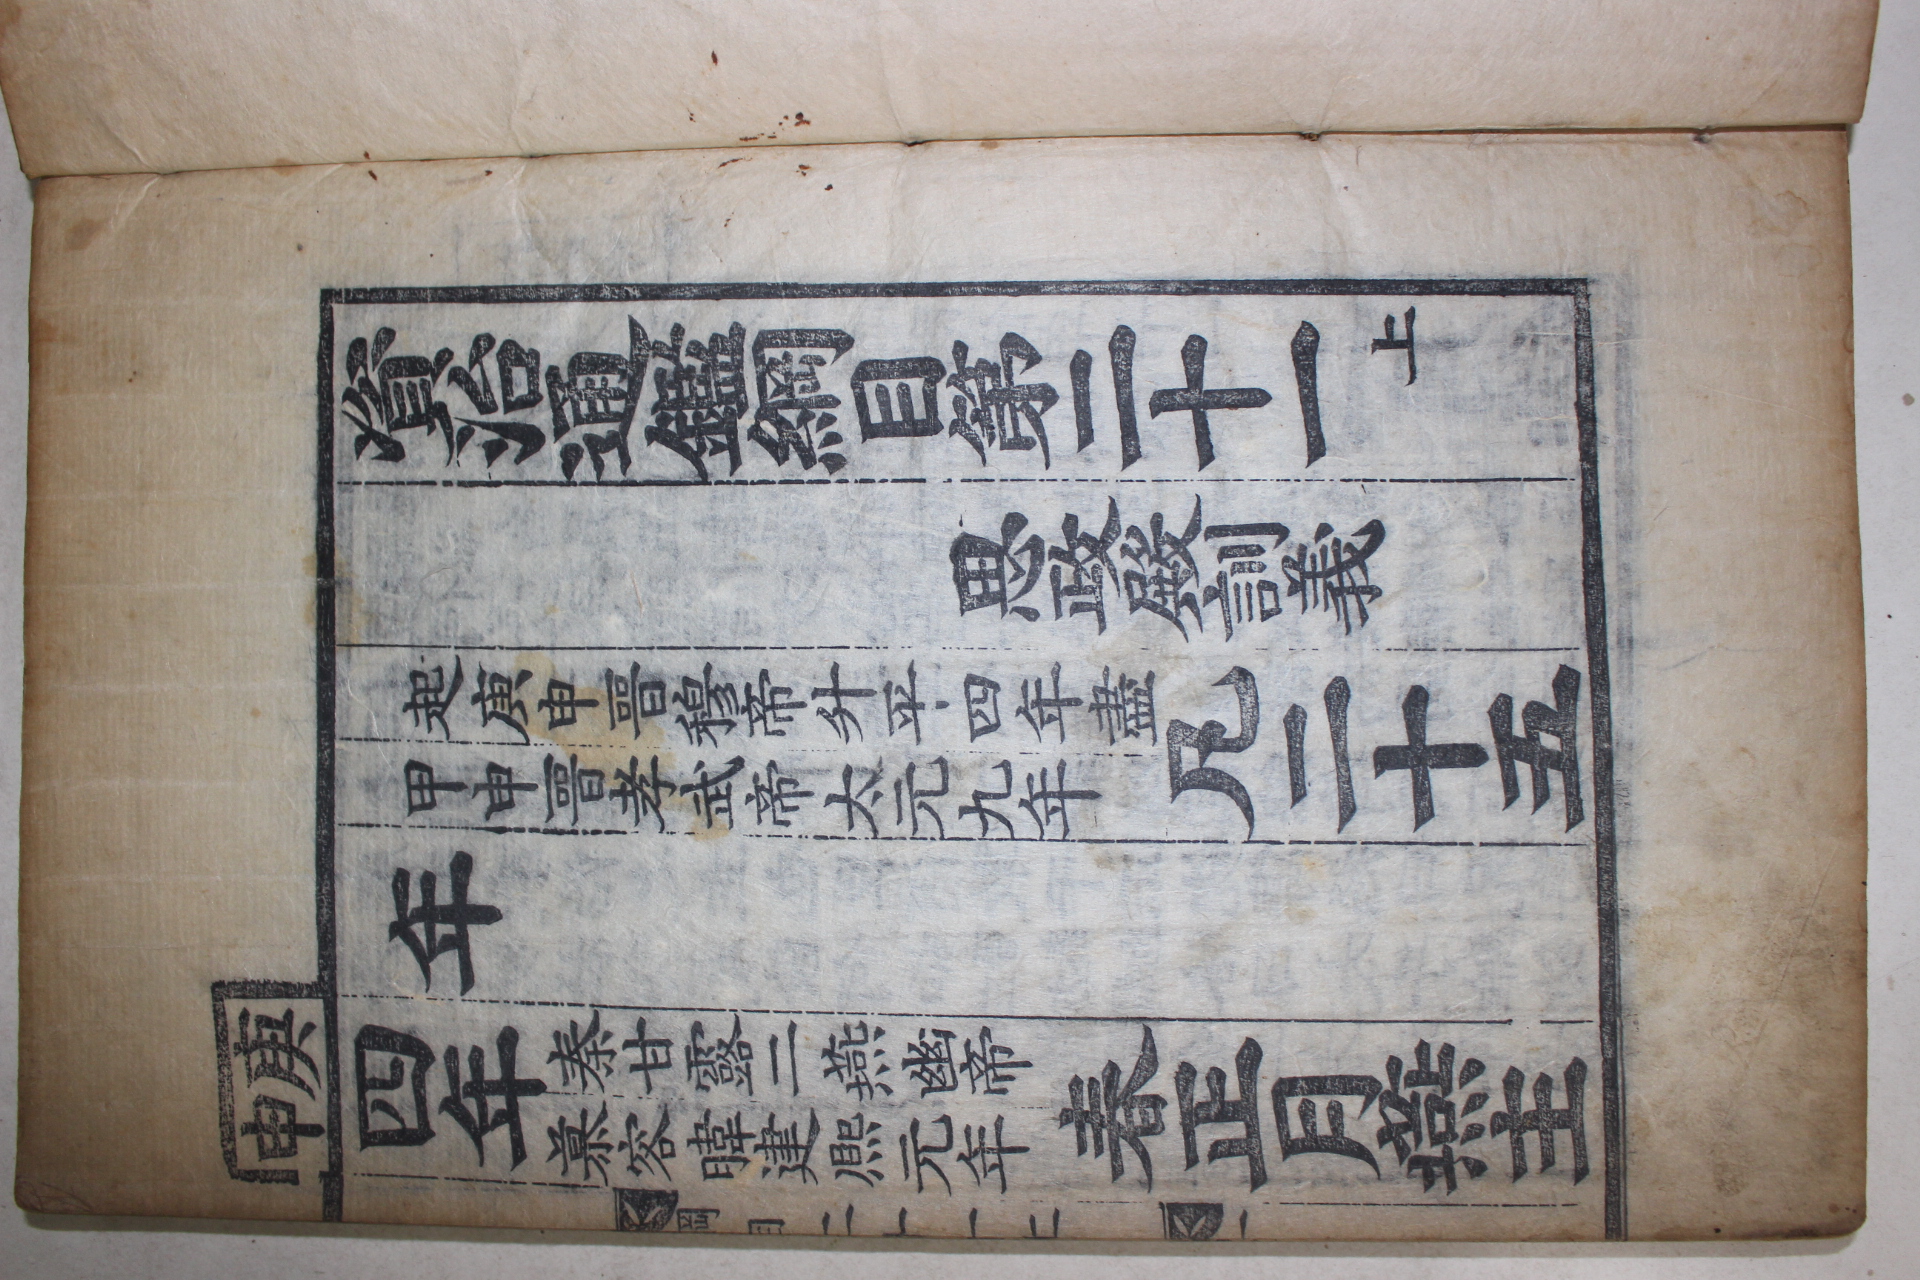 資治通鑑綱目第二十一上
思政殿訓義
起庚申晉穆帝升平四年盡
甲申晉孝武帝太元九年
凡二十五
年
庚申
四年
秦甘露二燕幽帝
慕容暐建熙元年
春正月燕主
綱目二十一上
一